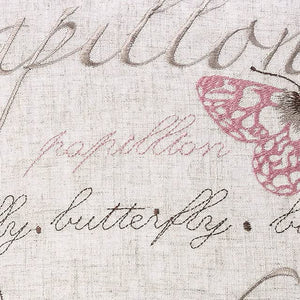 apillon
papillion
fly. butterfly. b